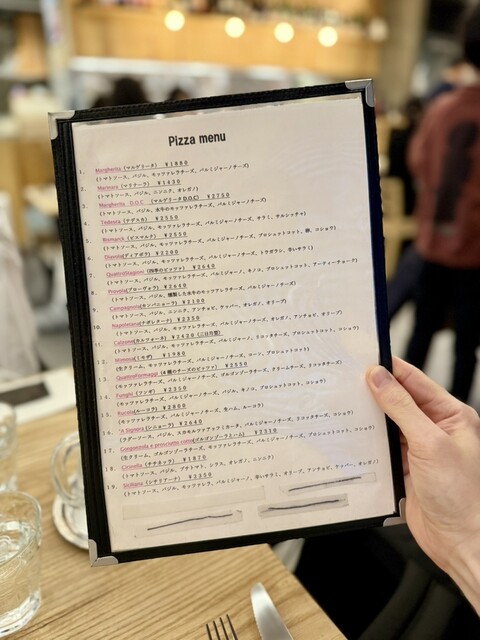 Pizza menu
1. Margherita (マルゲリータ) ¥1880
(トマトソース、バジル、モッツァレラチーズ、パルミジャーノチーズ)
2. Marinara (マリナーラ) ¥1430
(トマトソース、バジル、ニンニク、オレガノ)
3. Margherita D.O.C (マルゲリータD.O.C) ¥2750
(トマトソース、バジル、水牛のモッツァレラチーズ、パルミジャーノチーズ)
4. Tedesca (テデスカ) ¥2550
(トマトソース、バジル、モッツァレラチーズ、パルミジャーノチーズ、サラミ、サルシッチャ)
5. Bismarck (ビスマルク) ¥2550
(トマトソース、バジル、モッツァレラチーズ、パルミジャーノチーズ、プロシュットコット、卵、コショウ)
6. Diavola (ディアボラ) ¥2200
(トマトソース、バジル、モッツァレラチーズ、パルミジャーノチーズ、トウガラシ、辛いサラミ)
7. Quattrostagioni (四季のピッツァ) ¥2640
(トマトソース、バジル、モッツァレラチーズ、パルミジャーノチーズ、キノコ、プロシュットコット、アーティーチョーク)
8. Provola (プローヴォラ) ¥2640
(トマトソース、バジル、燻製した水牛のモッツァレラチーズ、パルミジャーノチーズ)
9. Campagnola (カンパニョーラ) ¥2100
(トマトソース、バジル、ニンニク、アンチョビ、ケッパー、オレガノ、オリーブ)
10. Napoletana (ナポレターナ) ¥2350
(トマトソース、バジル、モッツァレラチーズ、パルミジャーノチーズ、アンチョビ、オレガノ、オリーブ)
11. Calzone (カルツォーネ) ¥2420
(トマトソース、バジル、モッツァレラチーズ、パルミジャーノ、リコッタチーズ、プロシュットコット、コショウ)
12. Mimosa (ミモザ) ¥1980
(生クリーム、モッツァレラチーズ、パルミジャーノチーズ、コーン、プロシュットコット)
13. QuattroFormaggi (4種のチーズのピッツァ) ¥2550
(モッツァレラチーズ、パルミジャーノチーズ、ゴルゴンゾーラチーズ、クリームチーズ、リコッタチーズ)
14. Funghi (フンギ) ¥2350
(モッツァレラチーズ、パルミジャーノチーズ、バジル、キノコ、プロシュットコット、コショウ)
15. Rucola (ルーコラ) ¥2800
(モッツァレラチーズ、パルミジャーノチーズ、生ハム、ルーコラ)
16. 'A Signora (シニョーラ) ¥2640
(ラグーソース、バジル、スカモルツァアッフミカータ、パルミジャーノチーズ、リコッタチーズ、コショウ)
17. Gorgonzola e prosciutto cotto (ゴルゴンゾーラとハム) ¥2350
(生クリーム、ゴルゴンゾーラチーズ、モッツァレラチーズ、パルミジャーノチーズ、プロシュットコット、コショウ)
18. ¥1870
(トマトソース、バジル、プチトマト、シラス、オレガノ、ニンニク)
19. Siciliana (シチリアーナ) ¥2350
(トマトソース、バジル、モッツァレラ、パルミジャーノ、辛いサラミ、オリーブ、アンチョビ、ケッパー、オレガノ)